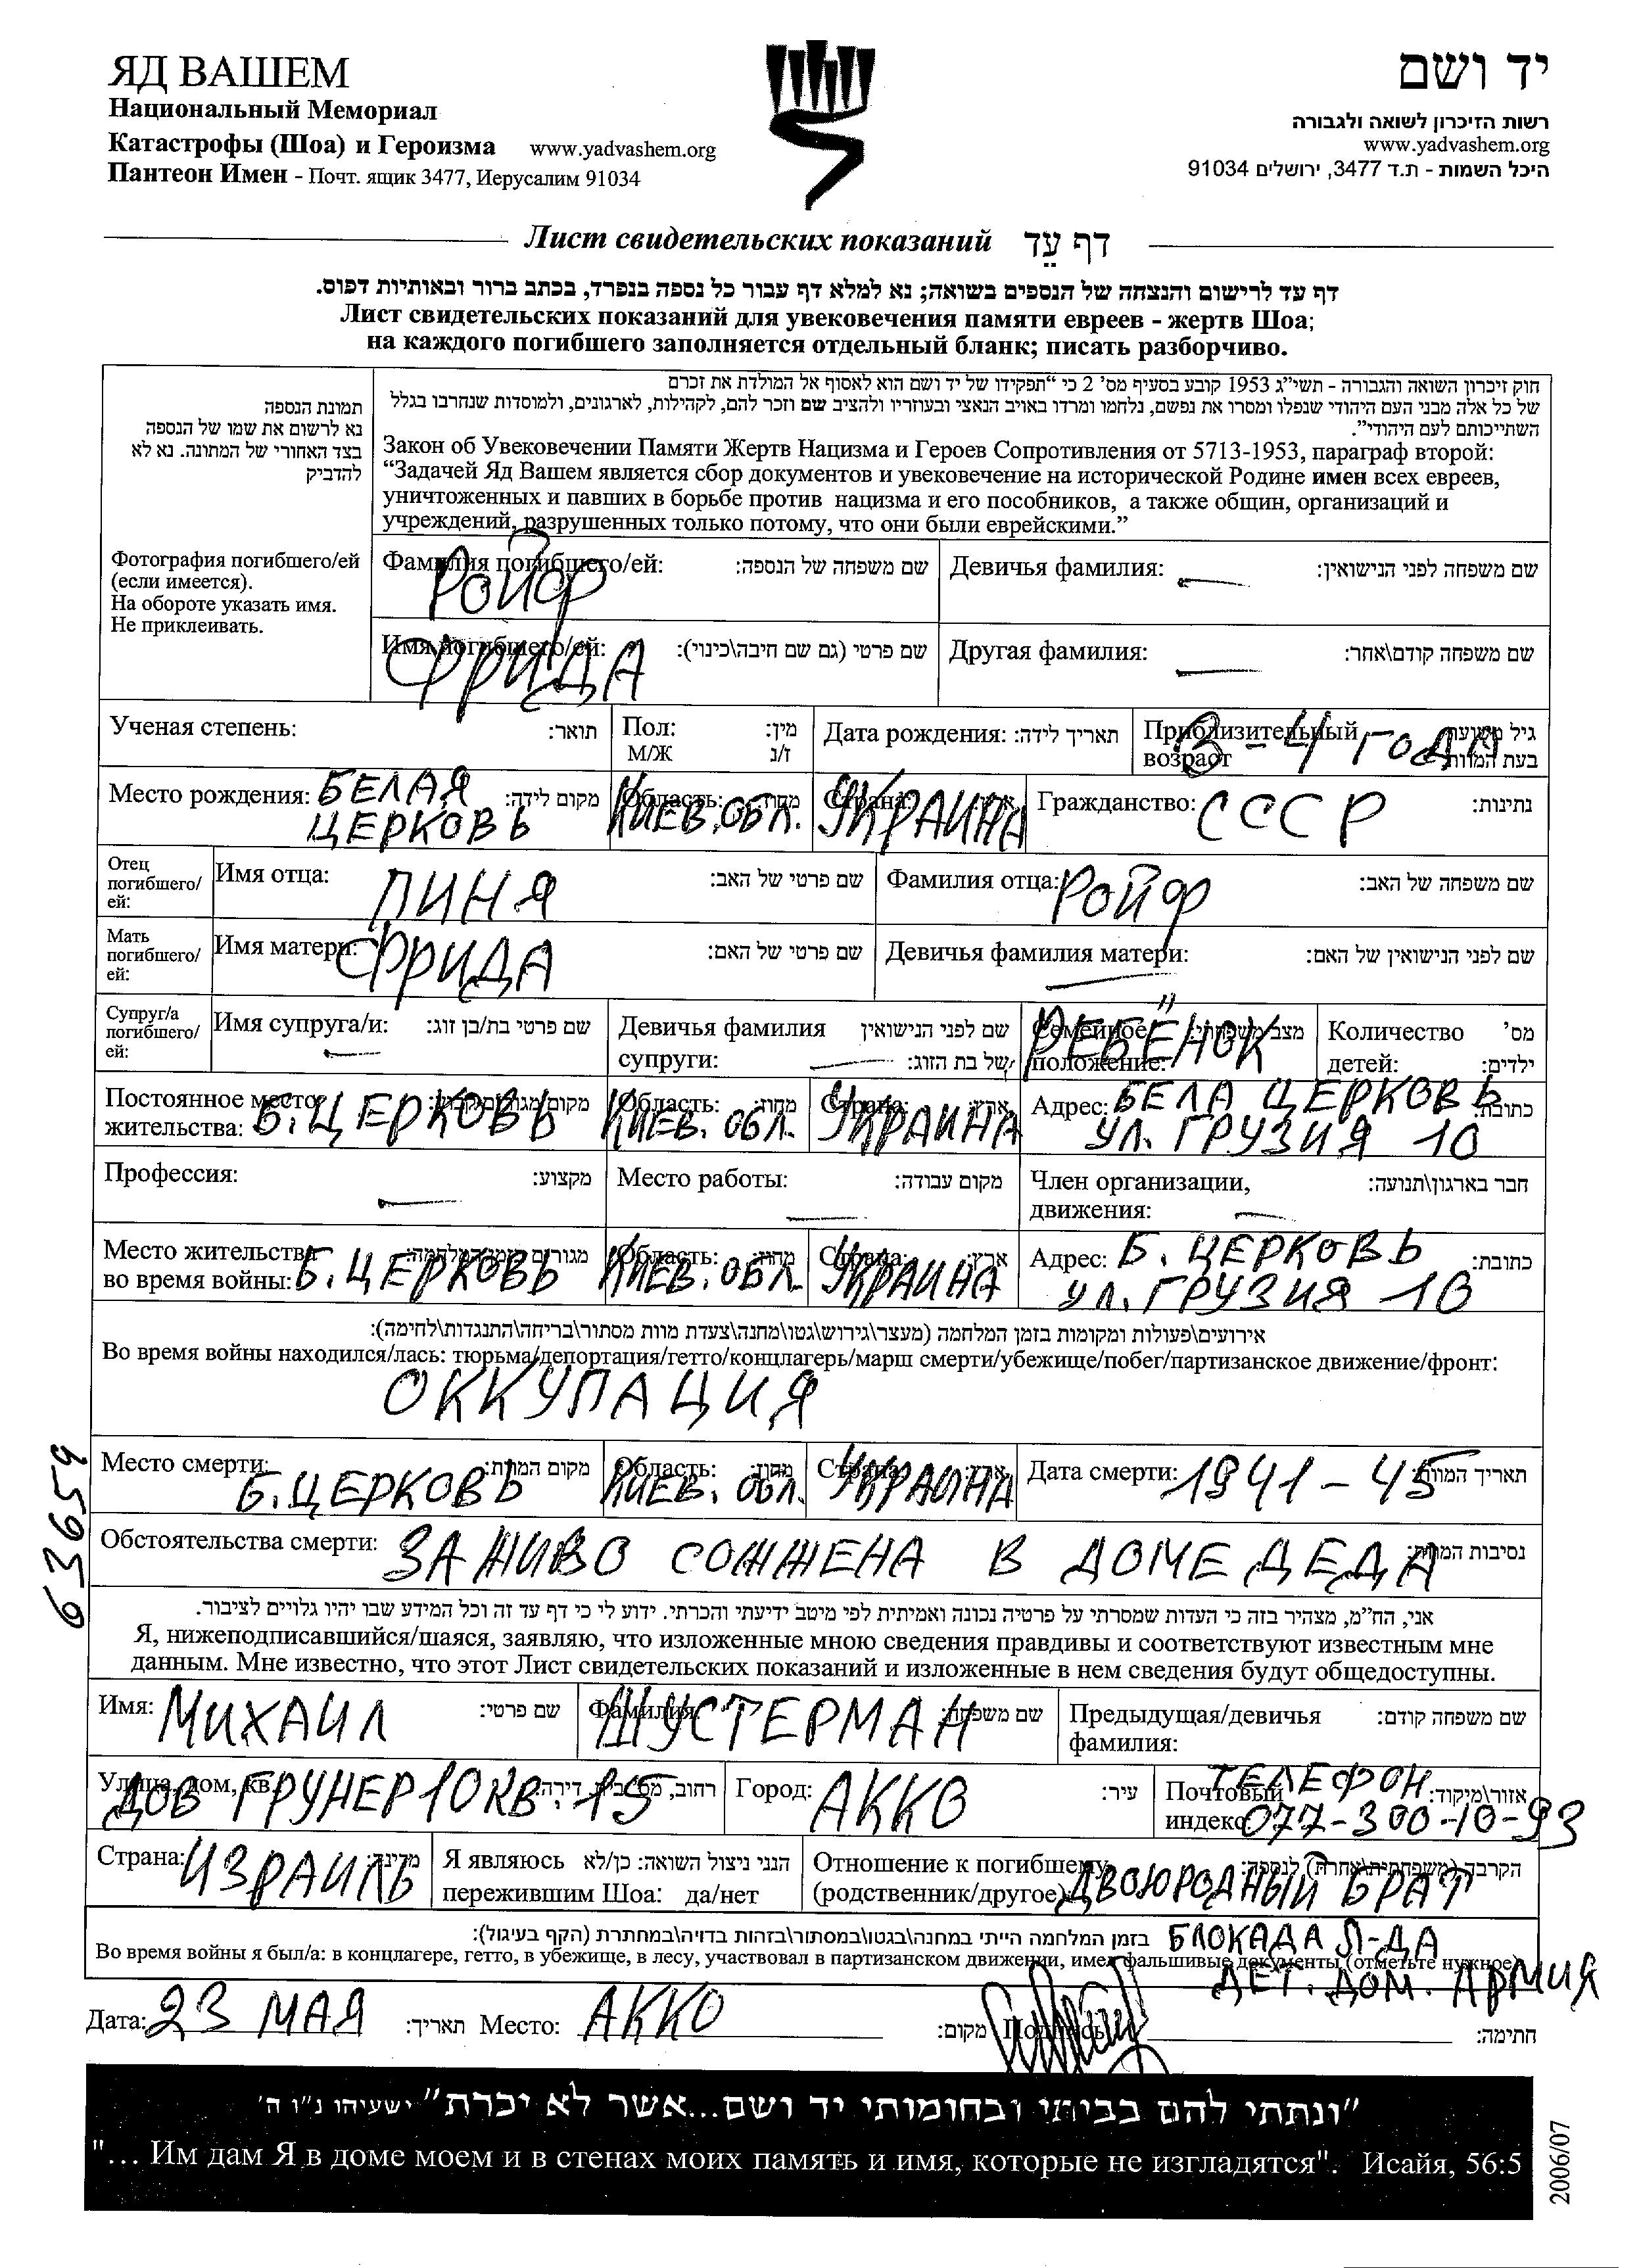 ЯД ВАШЕМ
Национальный Мемориал
Катастрофы (Шоа) и Героизма www.yadvashem.org
Пантеон Имен - Почт. ящик 3477, Иерусалим 91034
יד ושם
רשות הזיכרון לשואה ולגבורה
www.yadvashem.org
היכל השמות - ת.ד 3477, ירושלים 91034
Лист свидетельских показаний דף עֵד
דף עד לרישום והנצחה של הנספים בשואה; נא למלא דף עבור כל נספה בנפרד, בכתב ברור ובאותיות דפוס.
Лист свидетельских показаний для увековечения памяти евреев - жертв Шоа;
на каждого погибшего заполняется отдельный бланк; писать разборчиво.
תמונת הנספה
נא לרשום את שמו של הנספה
בצד האחורי של המתונה. נא לא
להדביק
Фотография погибшего/ей
(если имеется).
На обороте указать имя.
Не приклеивать.
חוק זיכרון השואה והגבורה - תשי"ג 1953 קובע בסעיף מס' 2 כי "תפקידו של יד ושם הוא לאסוף אל המולדת את זכרם
של כל אלה מבני העם היהודי שנפלו ומסרו את נפשם, נלחמו ומרדו באויב הנאצי ובעוזריו ולהציב שם וזכר להם, לקהילות, לארגונים, ולמוסדות שנחרבו בגלל
השתייכותם לעם היהודי".
Закон об Увековечении Памяти Жертв Нацизма и Героев Сопротивления от 5713-1953, параграф второй:
“Задачей Яд Вашем является сбор документов и увековечение на исторической Родине имен всех евреев,
уничтоженных и павших в борьбе против нацизма и его пособников, а также общин, организаций и
учреждений, разрушенных только потому, что они были еврейскими.”
Фамилия погибшего/ей: РОЙФ שם משפחה של הנספה: Девичья фамилия: — שם משפחה לפני הנישואין:
Имя погибшего/ей: ФРИДА שם פרטי (גם שם חיבה\כינוי): Другая фамилия: — שם משפחה קודם\אחר:
Ученая степень: תואר: Пол: מין: Дата рождения: תאריך לידה: Приблизительный 3-4 ГОДА גיל
М/Ж ז/נ возраст בעת המוות
Место рождения: БЕЛАЯ מקום לידה: Область: КИЕВ. ОБЛ. מחוז: Страна: УКРАИНА Гражданство: СССР נתינות:
ЦЕРКОВЬ
Отец
погибшего/
ей:
Имя отца: ПИНЯ שם פרטי של האב: Фамилия отца: РОЙФ שם משפחה של האב:
Мать
погибшего/
ей:
Имя матери: ФРИДА שם פרטי של האם: Девичья фамилия матери: — שם לפני הנישואין של האם:
Супруг/а
погибшего/
ей:
Имя супруга/и: — שם פרטי בת/בן זוג: Девичья фамилия שם לפני הנישואין Семейное מצב משפחתי: Количество מס'
супруги: — של בת הזוג: положение: РЕБЁНОК детей: ילדים:
Постоянное место מקום מגורים קבוע: Область: מחוז: Страна: ארץ: Адрес: БЕЛА ЦЕРКОВЬ כתובת:
жительства: Б. ЦЕРКОВЬ КИЕВ. ОБЛ. УКРАИНА УЛ. ГРУЗИЯ 10
Профессия: — מקצוע: Место работы: — מקום עבודה: Член организации, חבר בארגון\תנועה:
движения: —
Место жительства Область: מחוז: Страна: ארץ: Адрес: Б. ЦЕРКОВЬ כתובת:
во время войны: Б. ЦЕРКОВЬ КИЕВ. ОБЛ. УКРАИНА УЛ. ГРУЗИЯ 10
אירועים\פעולות ומקומות בזמן המלחמה (מעצר\גירוש\גטו\מחנה\צעדת מוות מסתור\בריחה\התנגדות\לחימה):
Во время войны находился/лась: тюрьма/депортация/гетто/концлагерь/марш смерти/убежище/побег/партизанское движение/фронт:
ОККУПАЦИЯ
Место смерти: Б. ЦЕРКОВЬ מקום המוות: Область: КИЕВ. ОБЛ. מחוז: Страна: УКРАИНА ארץ: Дата смерти: 1941-45 תאריך המוות:
Обстоятельства смерти: ЗА ЖИВО СОЖЖЕНА В ДОМЕ ДЕДА נסיבות המוות:
63659
אני, הח"מ, מצהיר בזה כי העדות שמסרתי על פרטיה נכונה ואמיתית לפי מיטב ידיעתי והכרתי. ידוע לי כי דף עד זה וכל המידע שבו יהיו גלויים לציבור.
Я, нижеподписавшийся/шаяся, заявляю, что изложенные мною сведения правдивы и соответствуют известным мне
данным. Мне известно, что этот Лист свидетельских показаний и изложенные в нем сведения будут общедоступны.
Имя: МИХАИЛ שם פרטי: Фамилия: ШУСТЕРМАН שם משפחה: Предыдущая/девичья שם משפחה קודם:
фамилия:
Улица, дом, кв. ДОВ ГРУНЕР 10 КВ. 15 רחוב, מס' בית, דירה: Город: АККО עיר: Почтовый ТЕЛЕФОН אזור\מיקוד:
индекс: 077-300-10-93
Страна: ИЗРАИЛЬ מדינה: Я являюсь הנני ניצול השואה: כן/לא Отношение к погибшему הקרבה (משפחתית\אחרת) לנספה:
пережившим Шоа: да/нет (родственник/другое): ДВОЮРОДНЫЙ БРАТ
בזמן המלחמה הייתי במחנה\בגטו\במסתור\בזהות בדויה\במחתרת (הקף בעיגול): БЛОКАДА Л-ДА
Во время войны я был/а: в концлагере, гетто, в убежище, в лесу, участвовал в партизанском движении, имел фальшивые документы (отметьте нужное)
ДЕТ. ДОМ. АРМИЯ
Дата: 23 МАЯ תאריך: Место: АККО מקום: Подпись: חתימה:
"ונתתי להם בביתי ובחומותי יד ושם...אשר לא יכרת" ישעיהו נ"ו ה'
"... Им дам Я в доме моем и в стенах моих память и имя, которые не изгладятся". Исайя, 56:5
2006/07